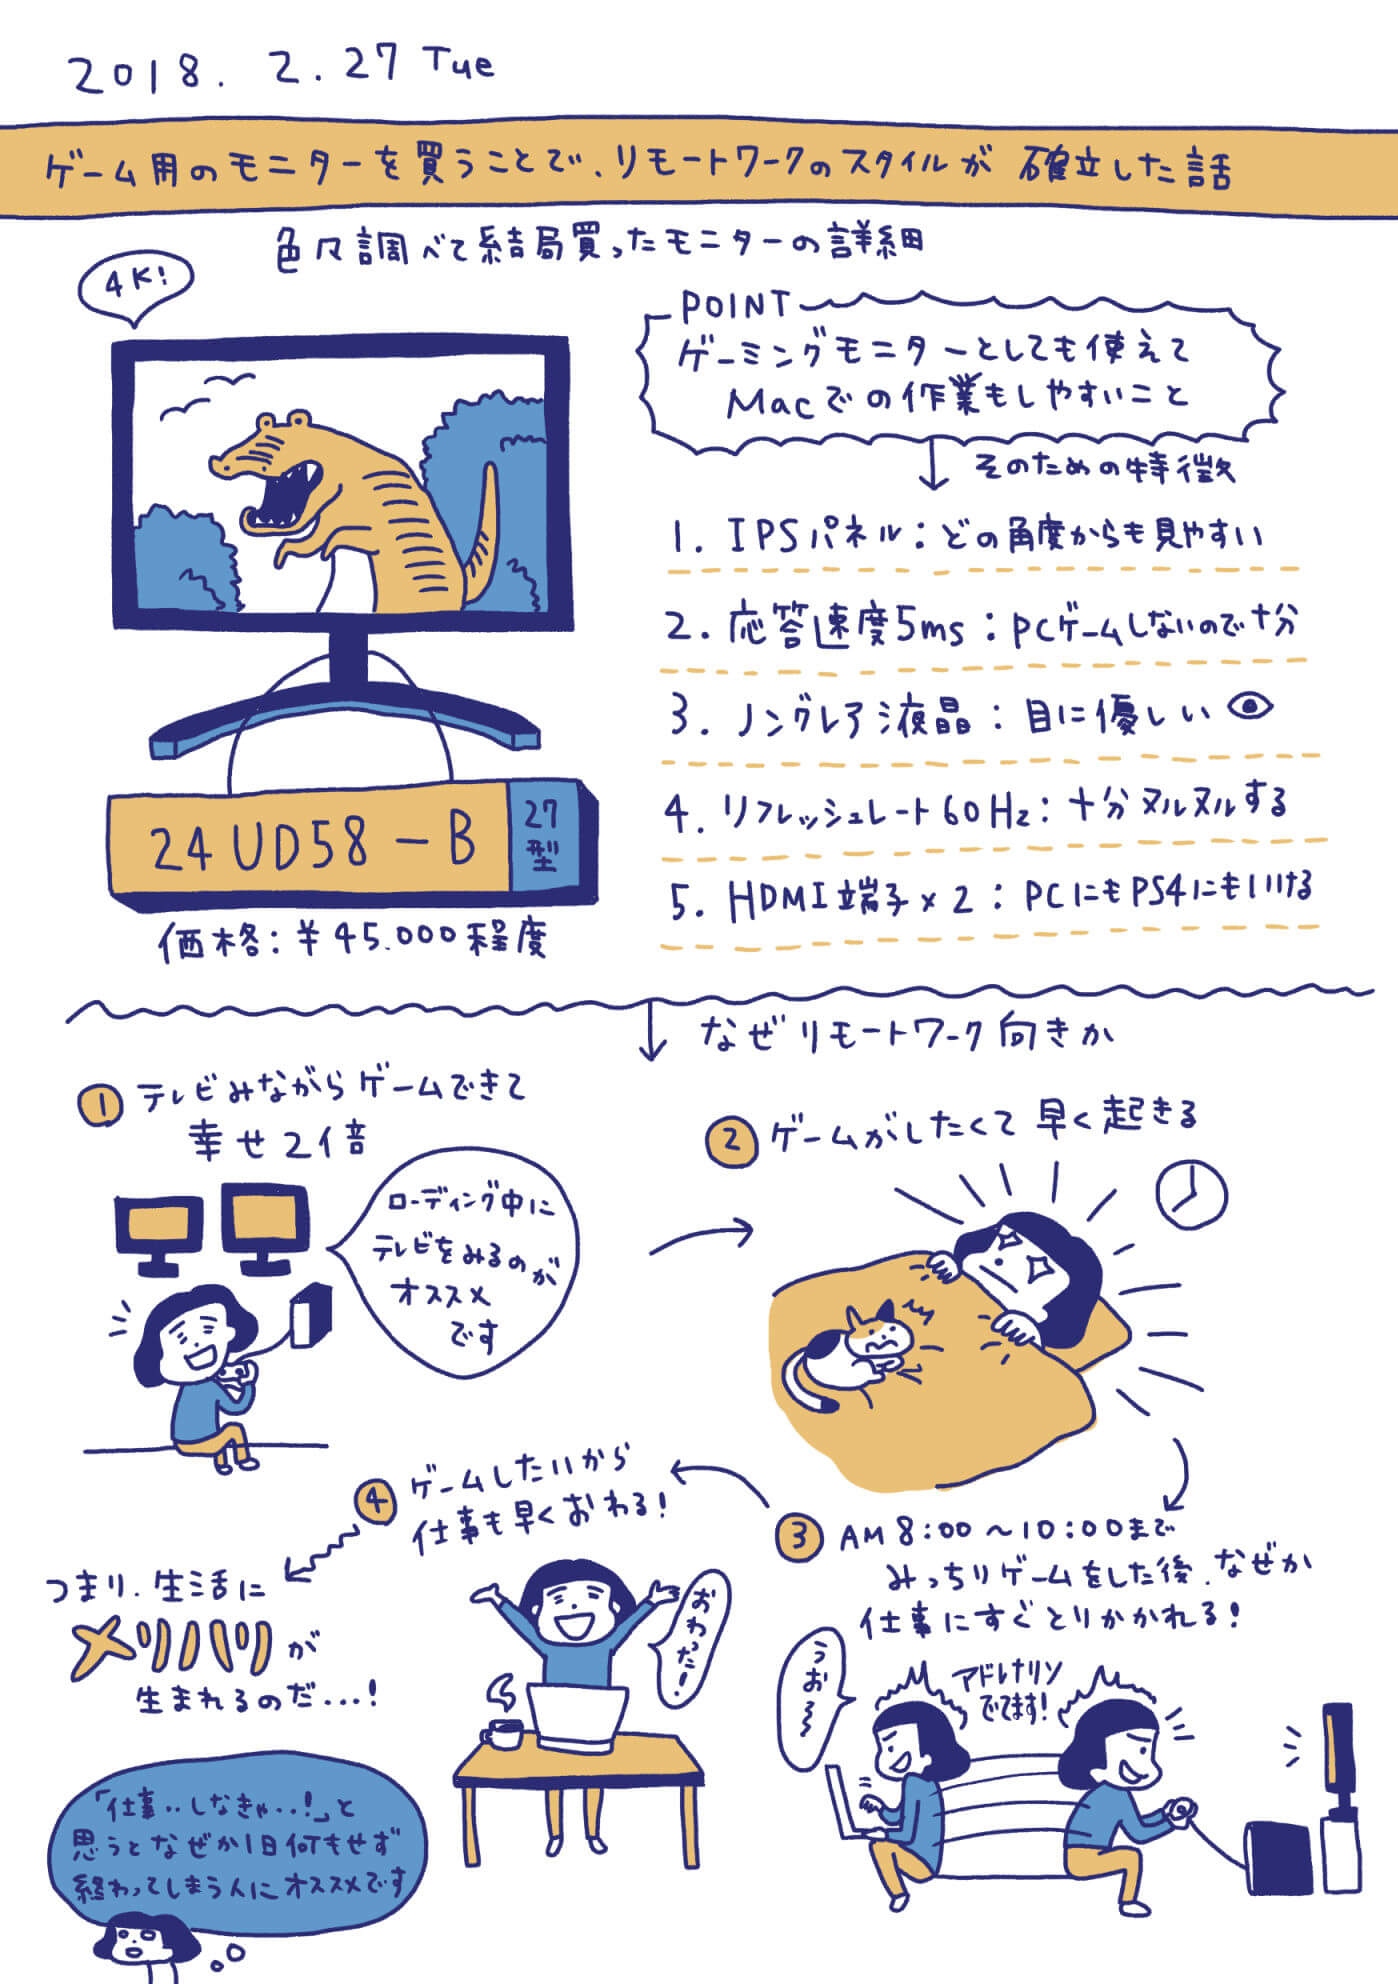 2018. 2.27 Tue
ゲーム用のモニターを買うことで、リモートワークのスタイルが 確立した話
色々調べて結局買ったモニターの詳細
4K!
POINT
ゲーミングモニターとしても使えて
Macでの作業もしやすいこと
そのための特徴
1. IPSパネル：どの角度からも見やすい
2. 応答速度5ms：PCゲームしないので十分
3. ノングレア液晶：目に優しい
4. リフレッシュレート60Hz：十分ヌルヌルする
5. HDMI端子×2：PCにもPS4にもいける
24UD58-B
27型
価格：¥45.000程度
なぜリモートワーク向きか
1 テレビみながらゲームできて
幸せ2倍
ローディング中に
テレビをみるのが
オススメ
です
2 ゲームがしたくて早く起きる
3 AM8:00〜10:00まで
みっちりゲームをした後、なぜか
仕事にすぐとりかかれる!
うお〜〜
アドレナリン
でてます!
4 ゲームしたいから
仕事も早くおわる!
おわった!
つまり、生活に
メリハリが
生まれるのだ...!
「仕事..しなきゃ..!」と
思うとなぜか1日何もせず
終わってしまう人にオススメです